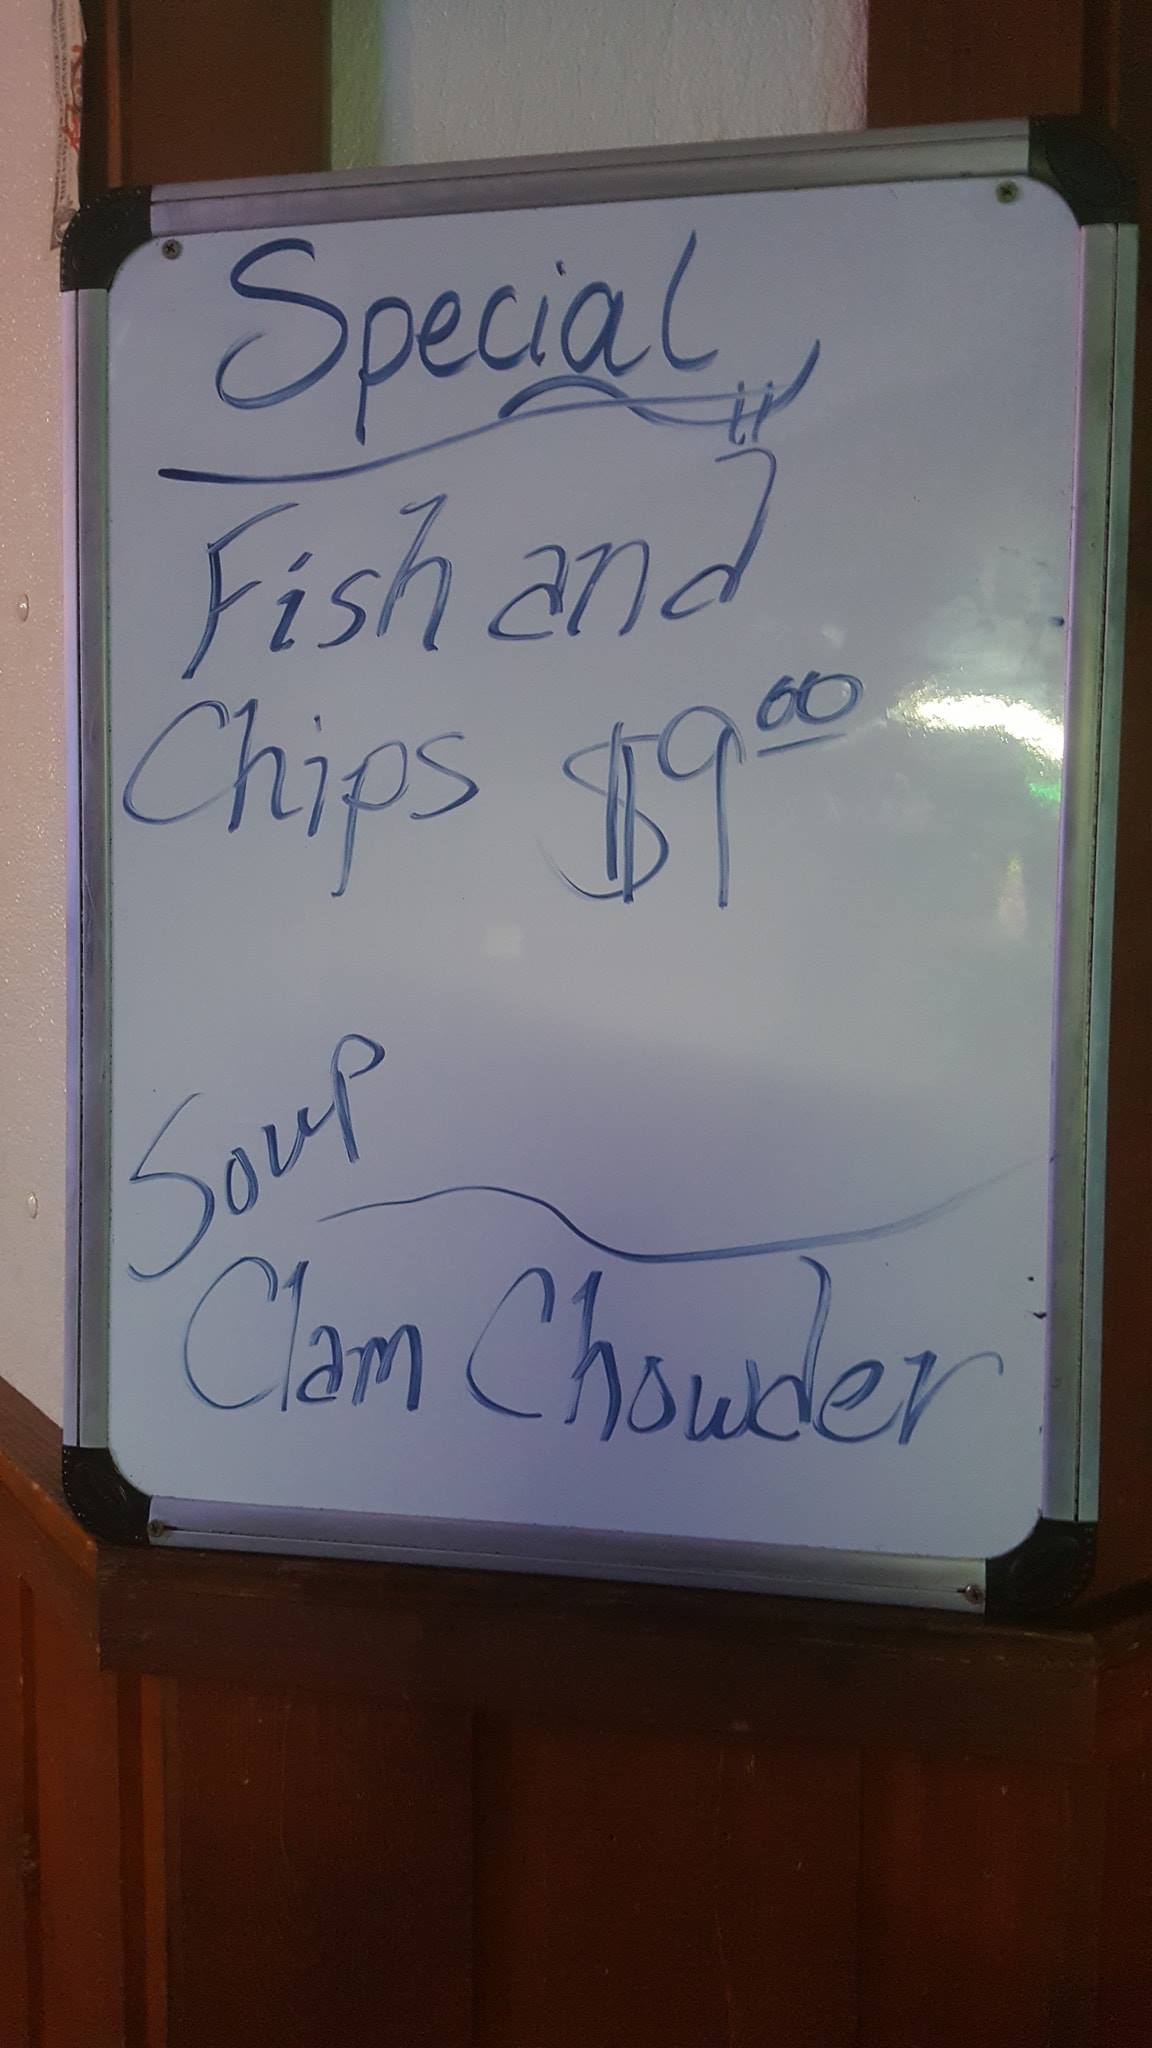 Special
Fish and
Chips $9.00
Soup
Clam Chowder